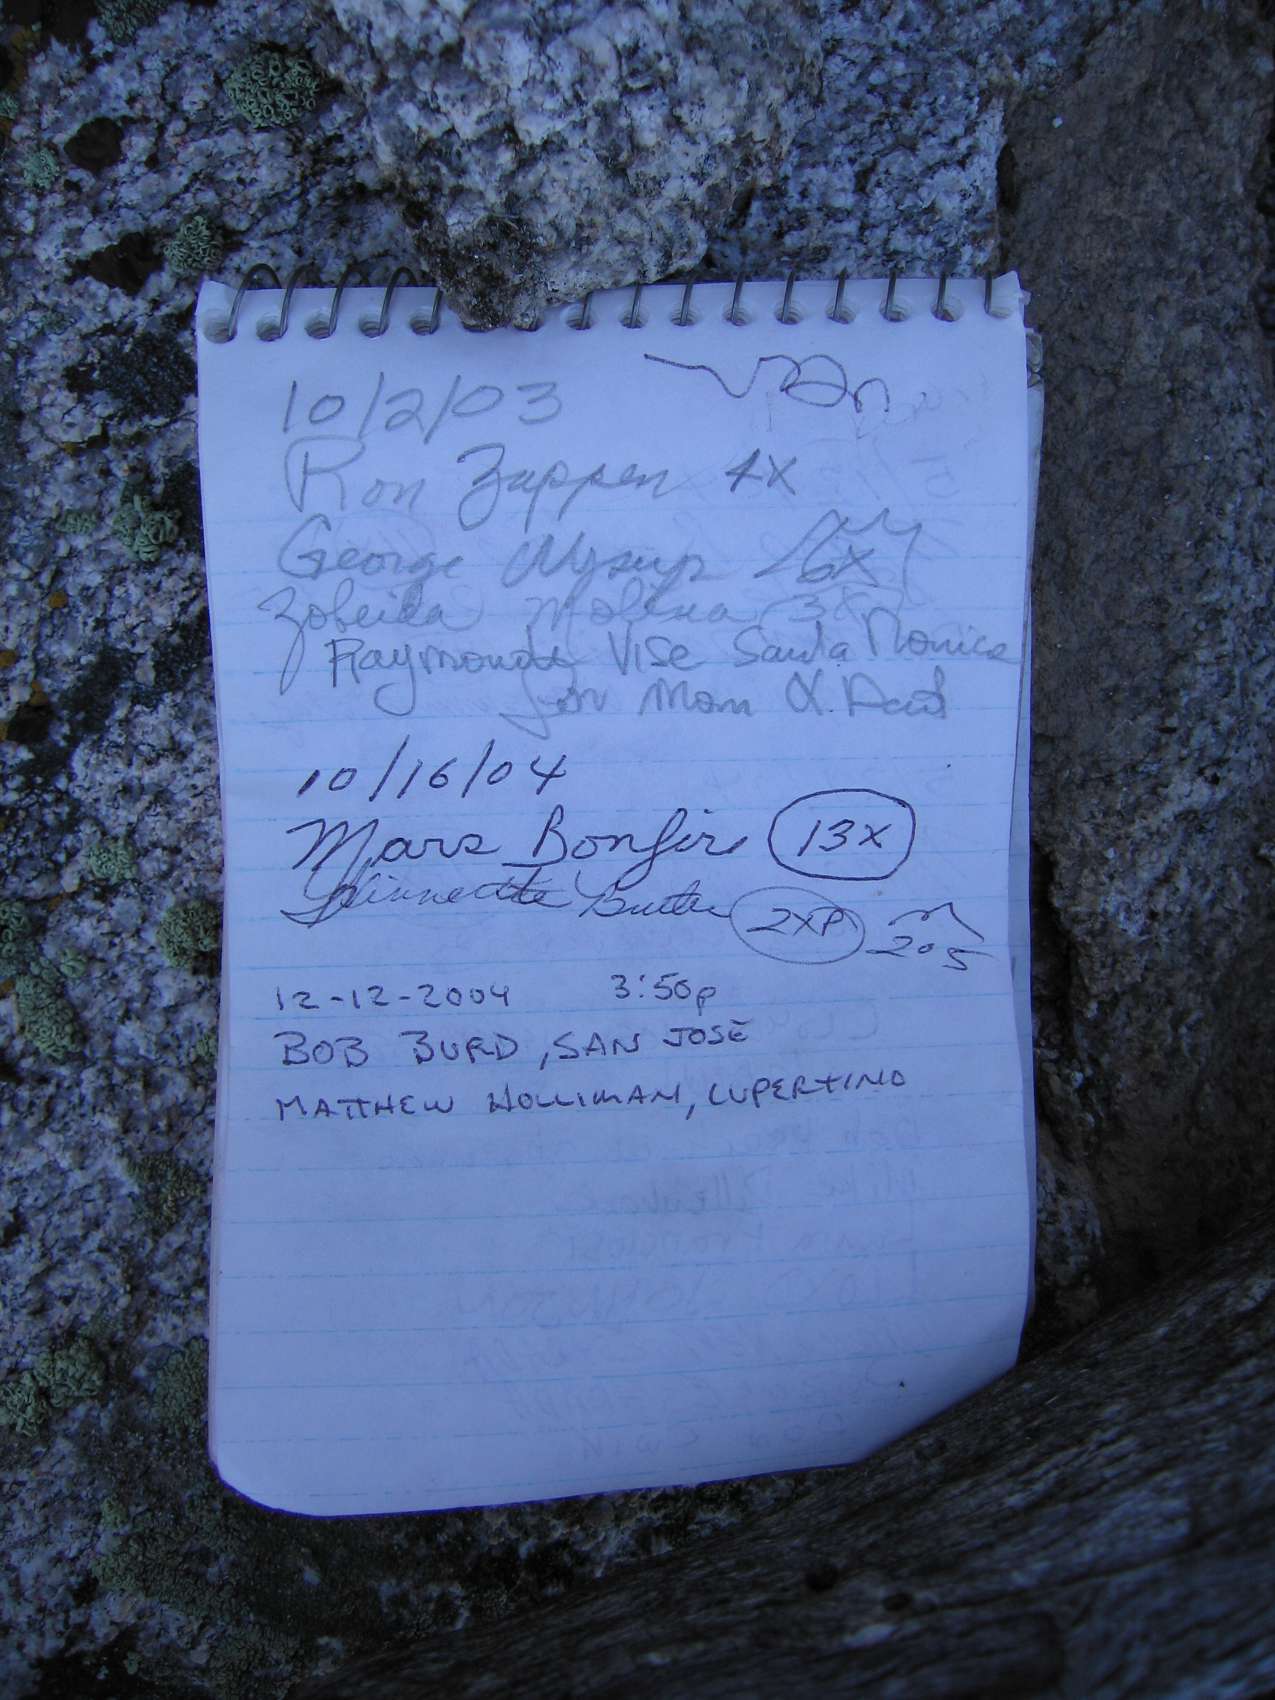 10/2/03
Ron Zappen 4X
George Wysup 6X
Zobeida Molina 3X
Raymonde Vise Santa Monica
for Mom & Dad
10/16/04
Mars Bonfire 13X
Linnette Butler 2XP 205
12-12-2004 3:50p
BOB BURD, SAN JOSE
MATTHEW HOLLIMAN, CUPERTINO